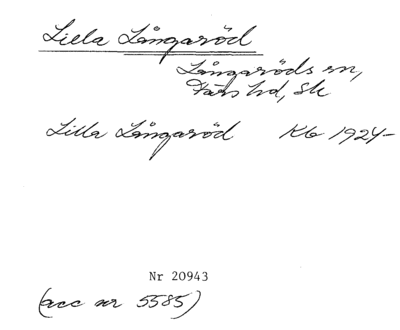 Lilla Långaröd
Långaröds sn,
Färs hd, Sk
Lilla Långaröd Kb 1924-
Nr 20943
(acc nr 5585)